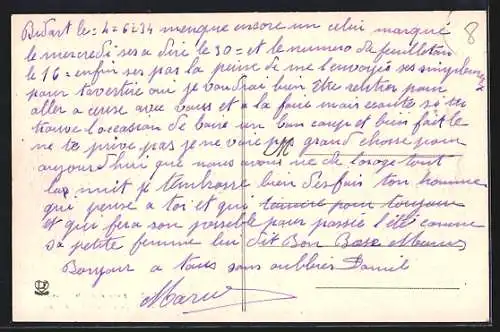 Bidart le = 4 = 6 = 34 menque encore un celui marqué
le mercredi ses a dire le 30 = et le numero du feuilleton
le 16 = enfin ses pas la peine de me l'envoyé ses simplement
pour t'avertire oui je voudrai bien être rentier pour
aller a ceuse avec vous et a la foire mais ecoute si tu
trouve l'occasion de boire un bon coup et bien fait le
ne te prive pas je ne voie pas grand chose pour
aujourd'hui que nous avons ue de l'orage tout
la nuit je t'embrasse bien des fois ton homme
que pense a toi et qui t'aimere pour toujours
et qui fera son possible pour passée l'été comme
sa petite femme lui dit Bon Baser Meanes
Bonjour a tous sans oublier Daniel
Marius
8